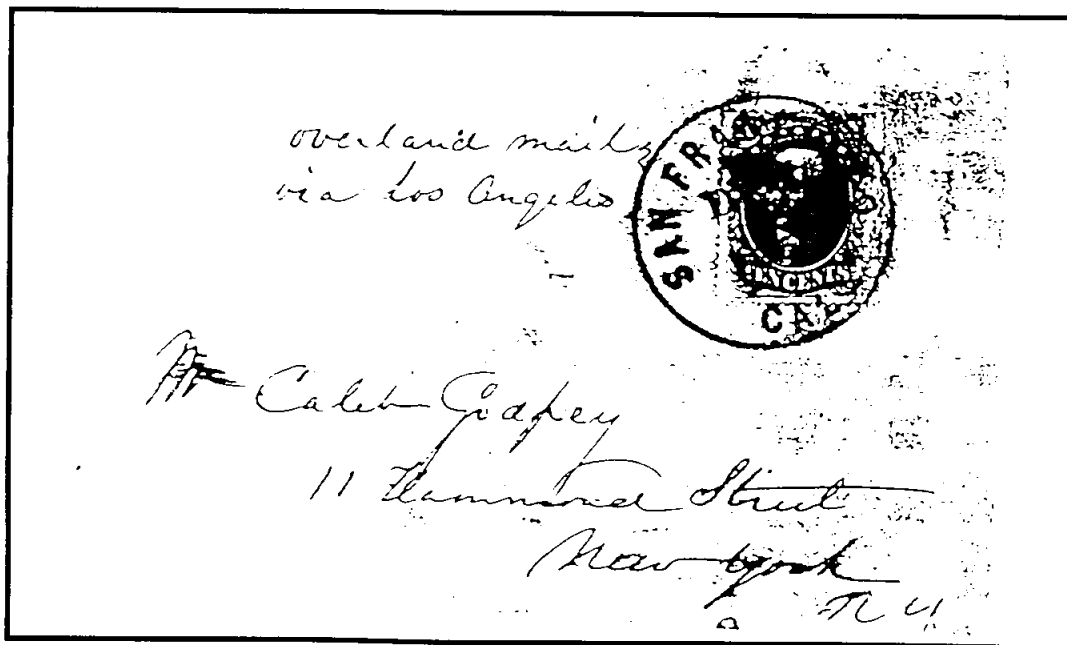 overland mail
via Los Angeles
SAN FRAN
CAL
TEN CENTS
Mr Caleb Godfrey
11 Hammond Street
New York
N Y